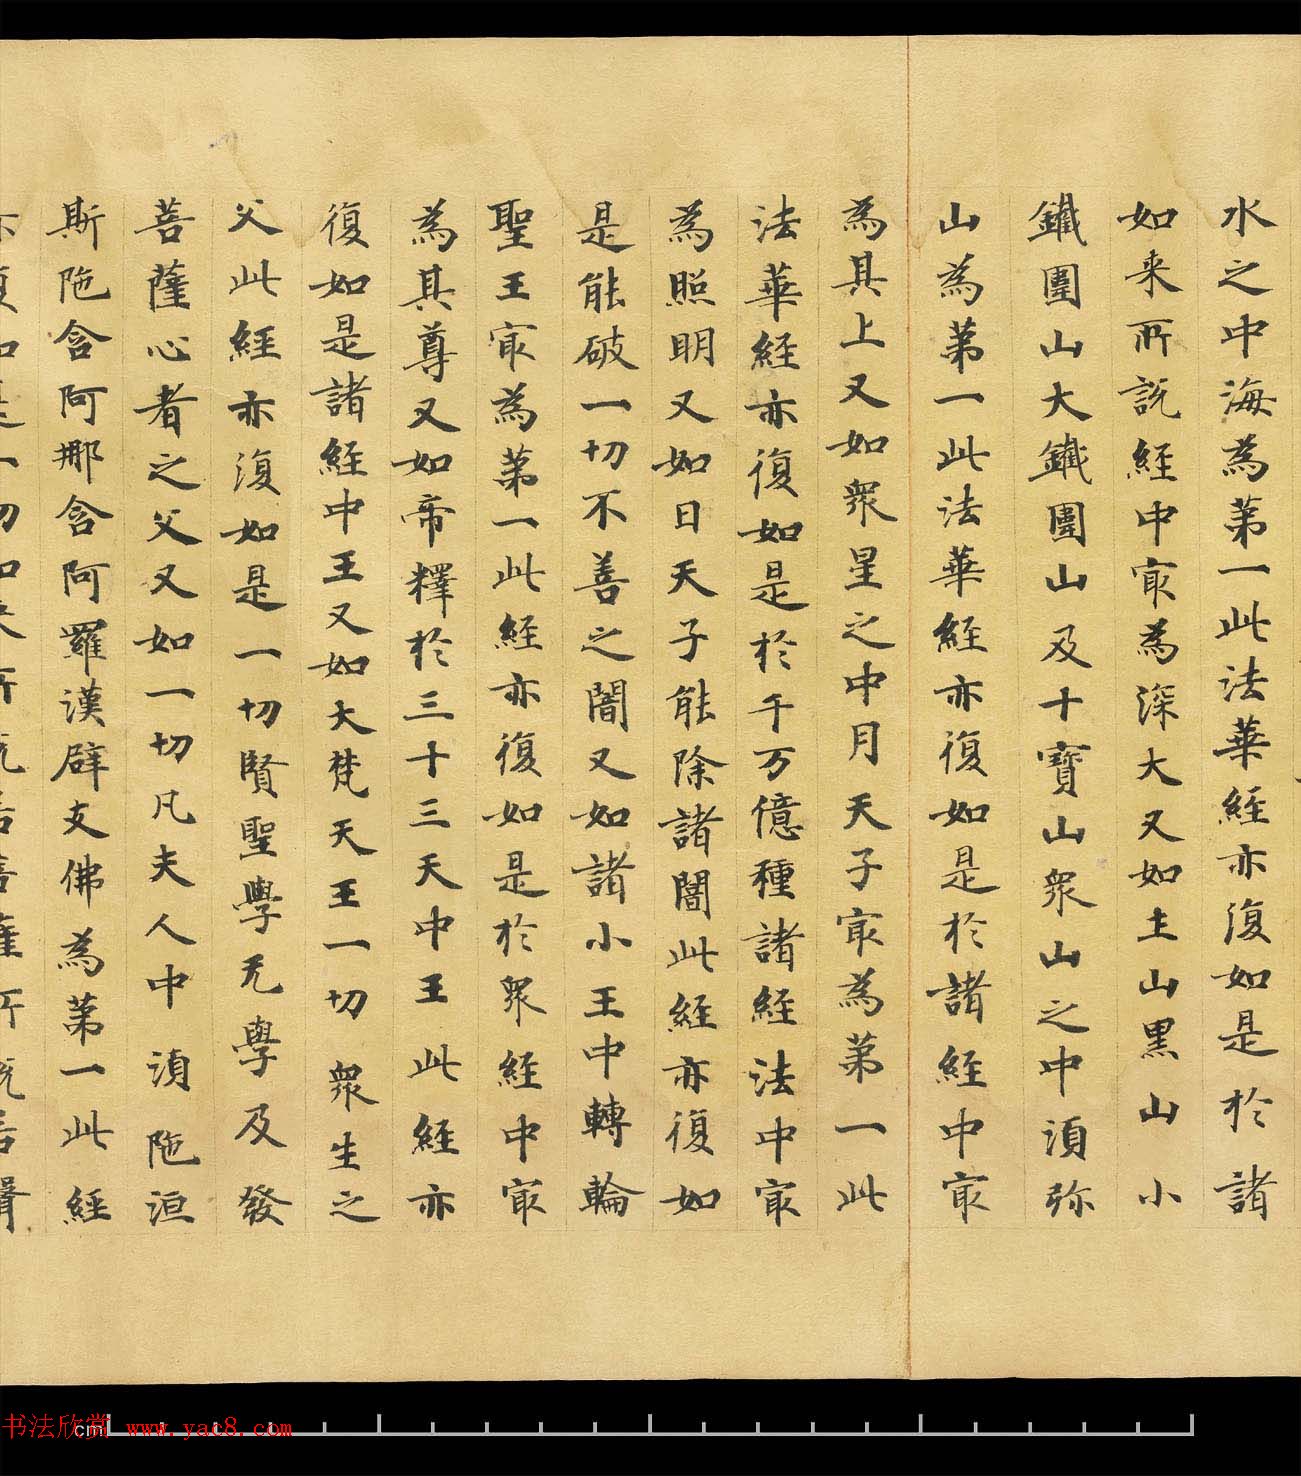 水之中海為第一此法華經亦復如是於諸
如来所說經中冣為深大又如土山黑山小
鐵圍山大鐵圍山及十寶山衆山之中湏弥
山為第一此法華經亦復如是於諸經中冣
為其上又如衆星之中月天子冣為第一此
法華經亦復如是於千万億種諸經法中冣
為照明又如日天子能除諸闇此經亦復如
是能破一切不善之闇又如諸小王中轉輪
聖王冣為第一此經亦復如是於衆經中冣
為其尊又如帝釋於三十三天中王此經亦
復如是諸經中王又如大梵天王一切衆生之
父此經亦復如是一切賢聖學无學及發
菩薩心者之父又如一切凡夫人中湏陁洹
斯陁含阿那含阿羅漢辟支佛為第一此經
亦復如是一切如来所說若菩薩所說若聲
書法欣赏 www.yac8.com
cm